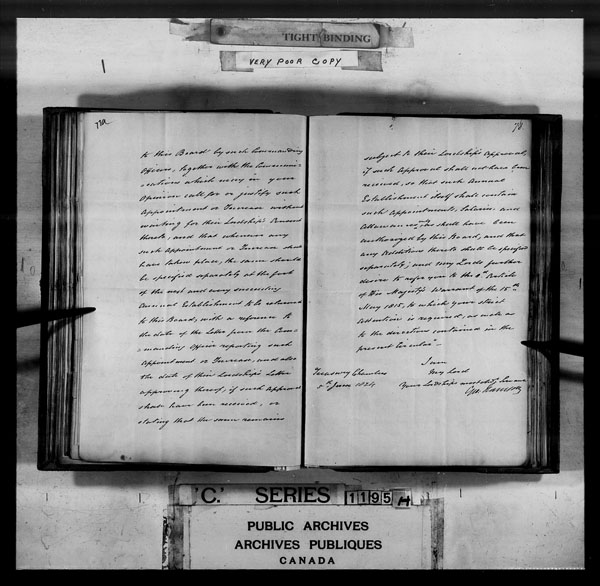 TIGHT BINDING
VERY POOR COPY
to this Board by such Commanding
Officer, together with the
which may in your
Opinion call for or justify such
Appointment or Increase without
waiting for their Lordships
thereto, and that whenever any
such Appointment or Increase shall
have taken place, the same should
be specified separately at the foot
of the next and every succeeding
Annual Establishment to be returned
to this Board, with a reference to
the date of the Letter from the Com-
-manding Officer reporting such
Appointment or Increase, and also
the date of their Lordships Letter
approving thereof, if such Approval
shall have been received, or
stating that the same remains
78
subject to their Lordships Approval,
if such Approval shall not have been
received, so that such Annual
Establishment itself shall contain
such Appointments, Salaries and
Allowances only as shall have been
authorized by this Board, and that
any Additions thereto shall be specified
separately; and my Lords further
desire to refer you to the Article
of His Majesty's Warrant of the 15th
May 1815, to which your strict
attention is required, as well as
to the directions contained in the
present Circular.
I am
My Lord
Your Lordships Servant
Treasury Chambers
June 1824
'C.' SERIES 1195 A
PUBLIC ARCHIVES
ARCHIVES PUBLIQUES
CANADA